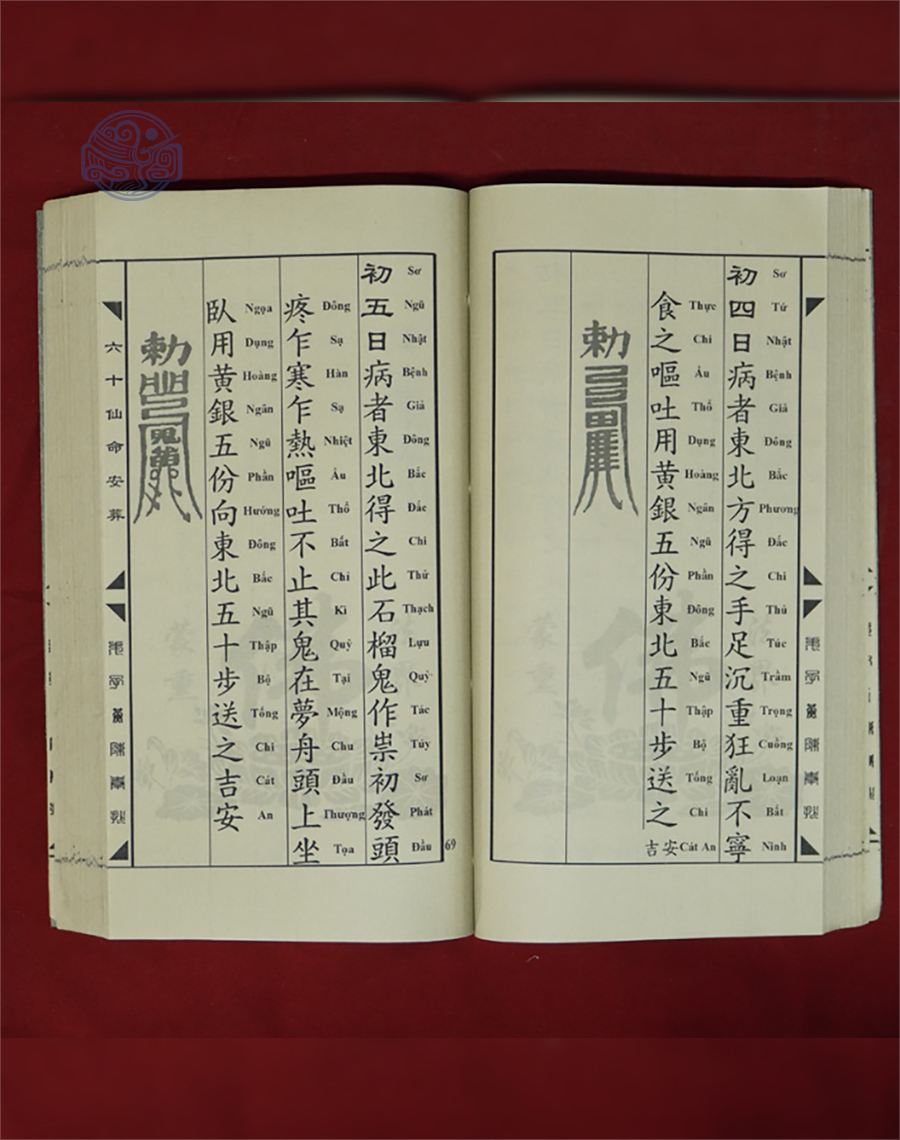 初四日病者東北方得之手足沉重狂亂不寧
Sơ Tứ Nhật Bệnh Giả Đông Bắc Phương Đắc Chi Thủ Túc Trầm Trọng Cuồng Loạn Bất Ninh
食之嘔吐用黃銀五份東北五十步送之吉安
Thực Chi Ẩu Thổ Dụng Hoàng Ngân Ngũ Phần Đông Bắc Ngũ Thập Bộ Tống Chi Cát An
勅
初五日病者東北得之此石榴鬼作祟初發頭
Sơ Ngũ Nhật Bệnh Giả Đông Bắc Đắc Chi Thử Thạch Lựu Quỷ Tác Túy Sơ Phát Đầu
疼乍寒乍熱嘔吐不止其鬼在夢舟頭上坐
Đông Sạ Hàn Sạ Nhiệt Ẩu Thổ Bất Chỉ Kì Quỷ Tại Mộng Chu Đầu Thượng Tọa
臥用黃銀五份向東北五十步送之吉安
Ngọa Dụng Hoàng Ngân Ngũ Phần Hướng Đông Bắc Ngũ Thập Bộ Tống Chi Cát An
勅
六十仙命安葬
69